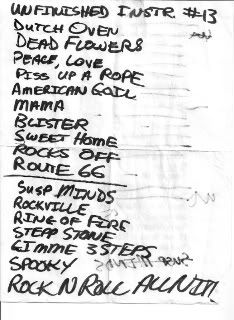 UNFINISHED INSTR. #13
DUTCH OVEN
DEAD FLOWERS
PEACE, LOVE
PISS UP A ROPE
AMERICAN GOIL
MAMA
BLISTER
SWEET HOME
ROCKS OFF
ROUTE 66
SUSP MINDS
ROCKVILLE
RING OF FIRE
STEPP STONE
GIMME 3 STEPS
SPOOKY
ROCK N ROLL ALL NITE